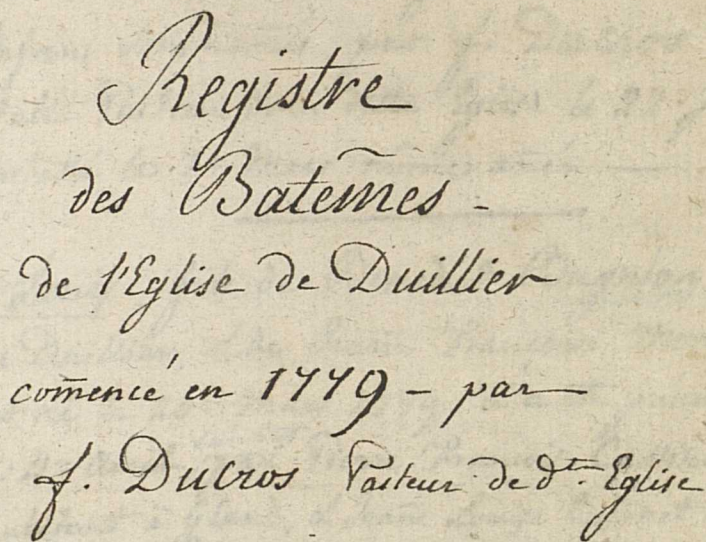 Registre
des Batem̃es -
de l'Eglise de Duillier
com̃encé en 1779 - par
f. Ducros Pasteur de d.te Eglise